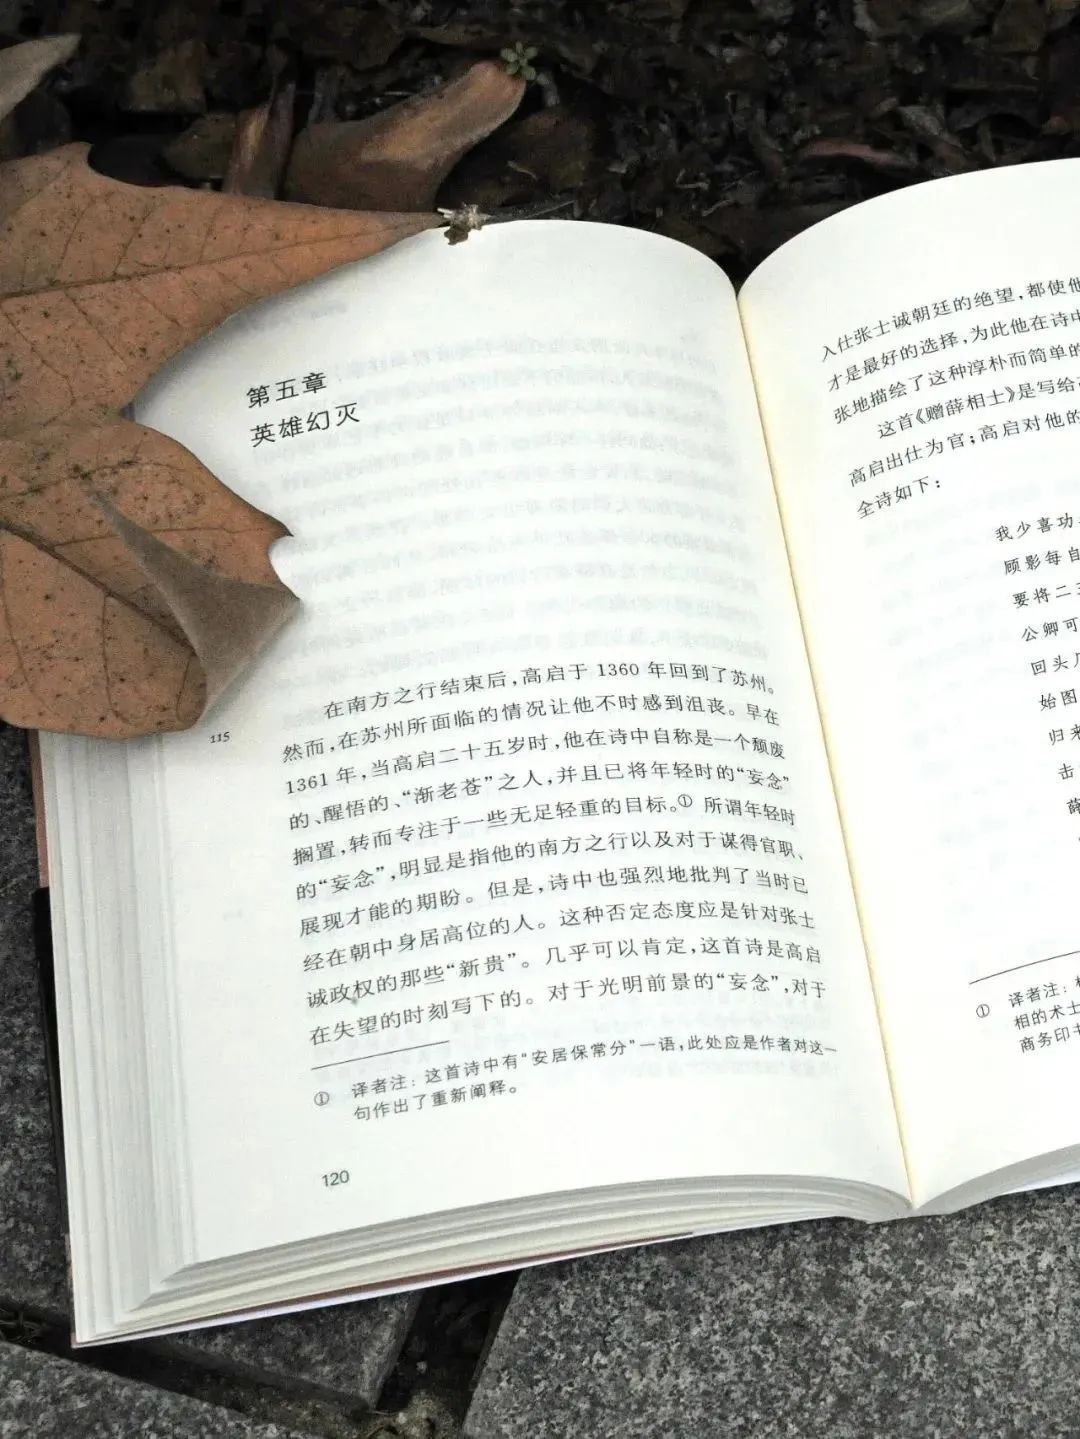 第五章
英雄幻灭
在南方之行结束后，高启于 1360 年回到了苏州。
115
然而，在苏州所面临的情况让他不时感到沮丧。早在
1361 年，当高启二十五岁时，他在诗中自称是一个颓废
的、醒悟的、“渐老苍”之人，并且已将年轻时的“妄念”
搁置，转而专注于一些无足轻重的目标。① 所谓年轻时
的“妄念”，明显是指他的南方之行以及对于谋得官职、
展现才能的期盼。但是，诗中也强烈地批判了当时已
经在朝中身居高位的人。这种否定态度应是针对张士
诚政权的那些“新贵”。几乎可以肯定，这首诗是高启
在失望的时刻写下的。对于光明前景的“妄念”，对于
① 译者注：这首诗中有“安居保常分”一语，此处应是作者对这一
句作出了重新阐释。
120
入仕张士诚朝廷的绝望，都使他
才是最好的选择，为此他在诗中
张地描绘了这种淳朴而简单的
这首《赠薛相士》是写给
高启出仕为官；高启对他的
全诗如下：
我少喜功
顾影每自
要将二三
公卿可
回头几
始图
归来
击
薛
① 译者注：
相的术士
商务印书